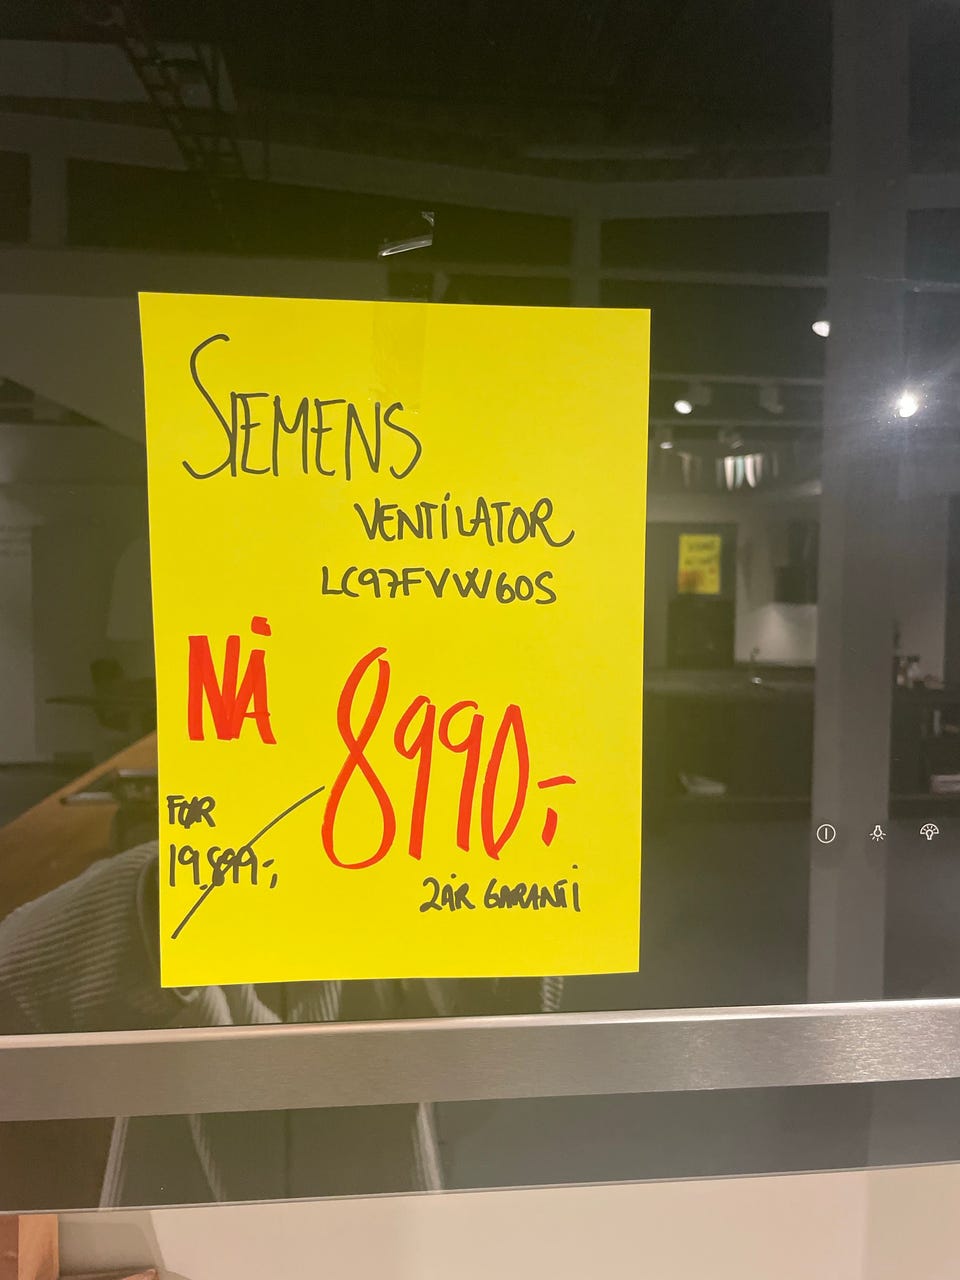 SIEMENS
VENTILATOR
LC97FVW60S
NÅ 8990,-
FØR
19.899,-
2 ÅR GARANTI